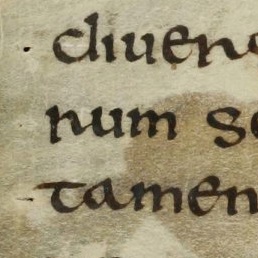 diuen
num se
tamen